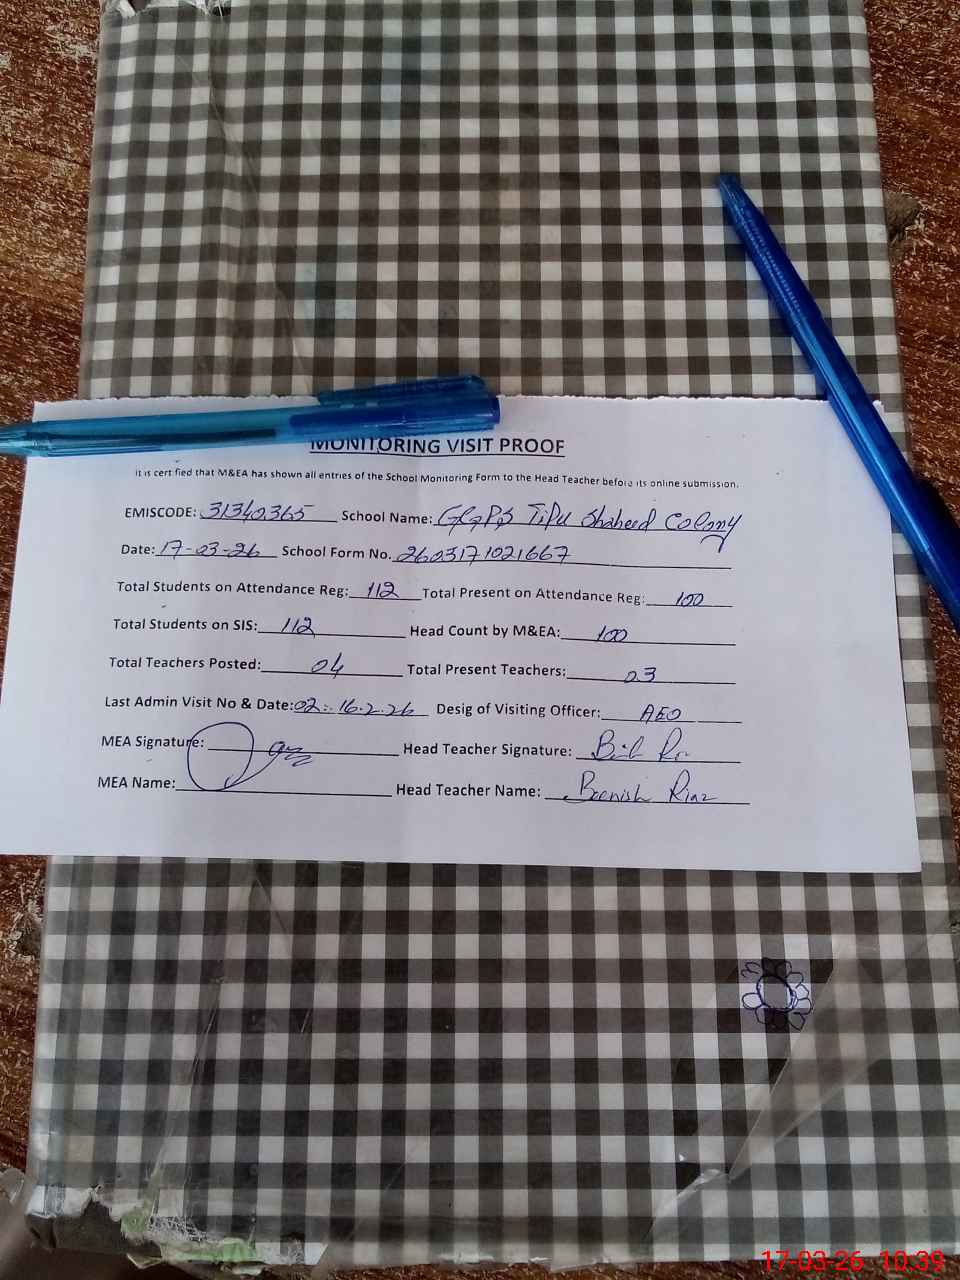 MONITORING VISIT PROOF
It is certified that M&EA has shown all entries of the School Monitoring Form to the Head Teacher before its online submission.
EMISCODE: 31340365 School Name: GGPS Tipu Shaheed Colony
Date: 17-03-26 School Form No. 2603171021667
Total Students on Attendance Reg: 112 Total Present on Attendance Reg: 100
Total Students on SIS: 112 Head Count by M&EA: 100
Total Teachers Posted: 04 Total Present Teachers: 03
Last Admin Visit No & Date: 02. 16.2.26 Desig of Visiting Officer: AEO
MEA Signature: Head Teacher Signature:
MEA Name: Head Teacher Name: Beenish Riaz
17-03-26 10:39